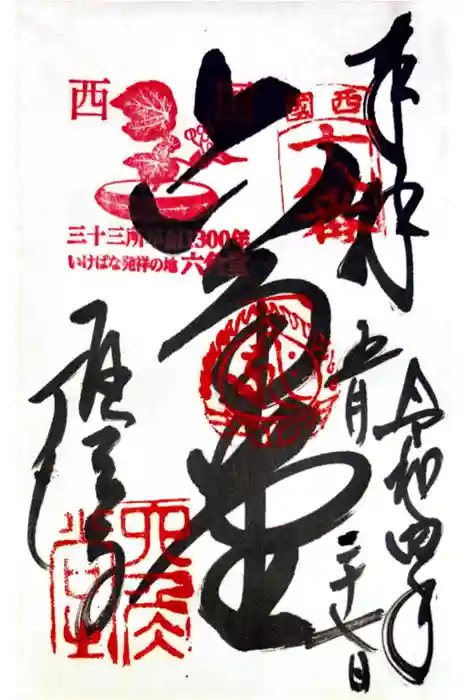 奉拝
令和四年
五月
二十七日
西國
十八番
六角堂
西国
三十三所草創1300年
いけばな発祥の地 六角堂
頂法寺
六角
堂